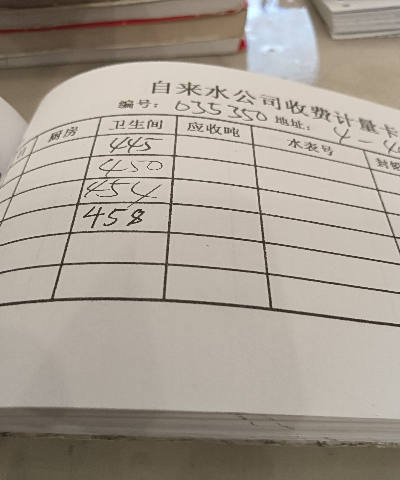 自来水公司收费计量卡
编号: 035350 地址: 4-4
厨房 卫生间 应收吨 水表号 封
445
450
454
458